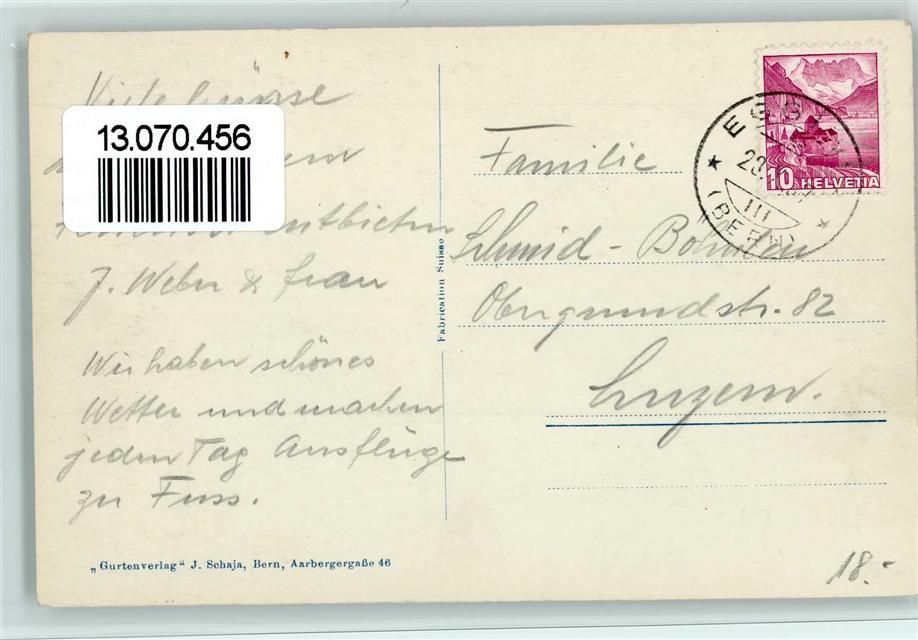 Viele Grüsse
13.070.456
entbieten
J. Weber & Frau
Wir haben schönes
Wetter und machen
jeden Tag Ausflüge
zu Fuss.
„Gurtenverlag“ J. Schaja, Bern, Aarbergergaße 46
Fabrication Suisse
10 HELVETIA
(BERN)
Familie
Schmid -
Obergrundstr. 82
Luzern.
18.-